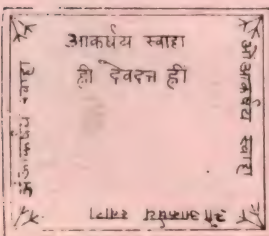 आकर्षय स्वाहा
ह्री देवदत्त ह्री
ओंआकर्षय स्वाहा
ओंआकर्षय स्वाहा
ओंआकर्षय स्वाहा